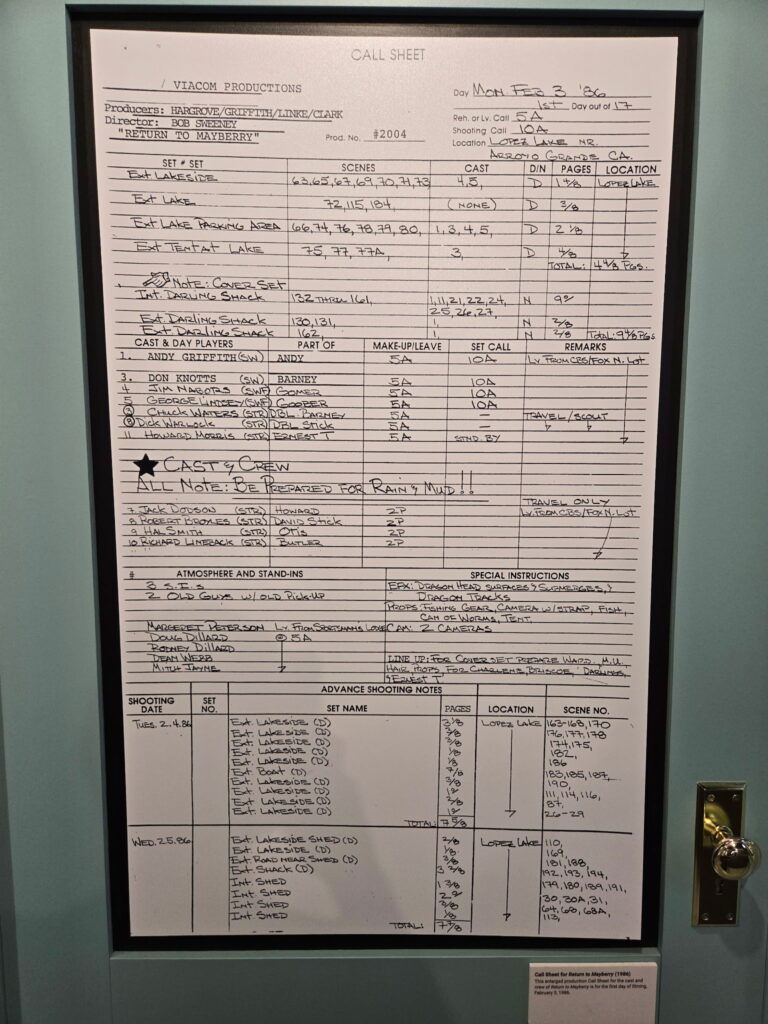 CALL SHEET
/ VIACOM PRODUCTIONS
Day MON. FEB 3 '86
1st Day out of 17
Producers: HARGROVE/GRIFFITH/LINKE/CLARK
Reh. or Lv. Call 5A
Director: BOB SWEENEY
Shooting Call 10A
"RETURN TO MAYBERRY"
Prod. No. #2004
Location LOPEZ LAKE NR.
ARROYO GRANDE CA.
SET # SET SCENES CAST D/N PAGES LOCATION
EXT LAKESIDE 63,65,67,69,70,71,73 4,5, D 1 4/8 LOPEZ LAKE
EXT LAKE 72,115,184, (NONE) D 3/8
EXT LAKE PARKING AREA 66,74,76,78,79,80, 1,3,4,5, D 2 1/8
EXT TENT AT LAKE 75, 77, 77A, 3, D 4/8
TOTAL: 4 4/8 PGS.
NOTE: COVER SET
INT. DARLING SHACK 132 THRU 161, 1,11,21,22,24, N
25,26,27,
EXT. DARLING SHACK 130,131, 1, N 2/8
EXT. DARLING SHACK 162, 1, N 2/8 TOTAL: 9 4/8 PGS.
CAST & DAY PLAYERS PART OF MAKE-UP/LEAVE SET CALL REMARKS
1. ANDY GRIFFITH (SW) ANDY 5A 10A LV. FROM CBS/FOX N. LOT
3. DON KNOTTS (SW) BARNEY 5A 10A
4 JIM NABORS (SWF) GOMER 5A 10A
5 GEORGE LINDSEY (SWF) GOOBER 5A 10A
CHUCK WATERS (STR) DBL. BARNEY 5A — TRAVEL/SCOUT
DICK WARLOCK (STR) DBL STICK 5A —
11 HOWARD MORRIS (STR) ERNEST T 5A STND. BY
★ CAST & CREW
ALL NOTE: BE PREPARED FOR RAIN & MUD!!
TRAVEL ONLY
7 JACK DODSON (STR) HOWARD 2P LV. FROM CBS/FOX N. LOT
8 ROBERT BROYLES (STR) DAVID STICK 2P
9 HAL SMITH (STR) OTIS 2P
10 RICHARD LINEBACK (STR) BUTLER 2P
# ATMOSPHERE AND STAND-INS SPECIAL INSTRUCTIONS
3 S.I.s
EFX: DRAGON HEAD SURFACES & SUBMERGES, &
2 OLD GUYS W/OLD PICK-UP
DRAGON TRACKS
PROPS: FISHING GEAR, CAMERA W/STRAP, FISH,
CAN OF WORMS, TENT.
MARGERET PETERSON LV. FROM
CAM: 2 CAMERAS
DOUG DILLARD @ 5A
RODNEY DILLARD
DEAN WEBB
LINE UP: FOR COVER SET PREPARE WARD., M.U.,
MITCH JAYNE
HAIR, PROPS, FOR CHARLENE, BRISCOE, DARLINGS,
& ERNEST T
ADVANCE SHOOTING NOTES
SHOOTING DATE SET NO. SET NAME PAGES LOCATION SCENE NO.
TUES. 2.4.86 EXT. LAKESIDE (D) 3 1/8 LOPEZ LAKE 163-168, 170
EXT. LAKESIDE (D) 176, 177, 178
EXT. LAKESIDE (D) 174, 175,
EXT. LAKESIDE (D) 182,
EXT. LAKESIDE (D) 1/8 186
EXT. BOAT (D) 7/8 183, 185, 187,
EXT. LAKESIDE (D) 190,
EXT. LAKESIDE (D) 111, 114, 116,
EXT. LAKESIDE (D) 87,
EXT. LAKESIDE (D) 26-29
TOTAL: 7 5/8
WED. 2.5.86 EXT. LAKESIDE SHED (D) 2/8 LOPEZ LAKE 110,
EXT. LAKESIDE (D) 1/8 169,
EXT ROAD NEAR SHED (D) 3/8 181, 188,
EXT. SHACK (D) 192, 193, 194,
INT SHED 1 3/8 179, 180, 189, 191,
INT SHED 30, 30A, 31,
INT SHED 64, 68, 68A,
INT SHED 1/8 113,
TOTAL: 7 7/8
Call Sheet for Return to Mayberry (1986)
This enlarged production Call Sheet for the cast and
crew of Return to Mayberry is for the first day of filming,
February 3, 1986.